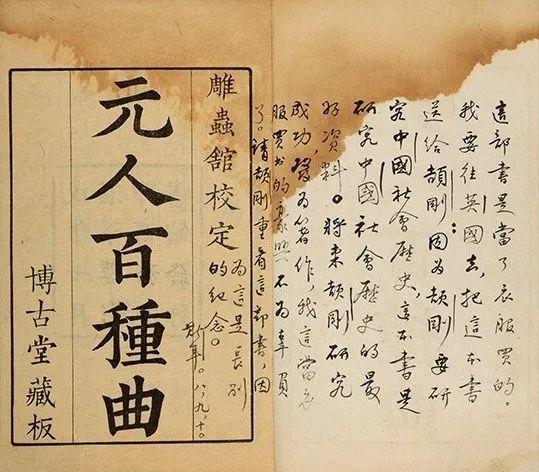 這部書是當了衣服買的。
我要往英國去,把這本書
送給頡剛;因為頡剛要研
究中國社會歷史,這本書是
研究中國社會歷史的最
好資料。將來頡剛研究
成功,為著作,我這當衣
服買书的不為辜負
了。請頡剛重看這部書,因
為這是長別
的紀念。
斯年。八,九,十。
雕蟲館校定
元人百種曲
博古堂藏板